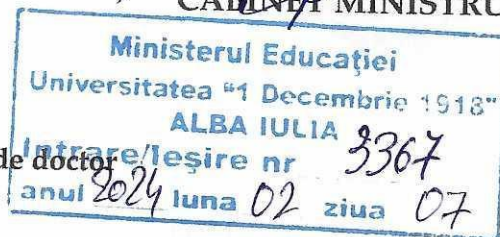 CABINET MINISTRU
Ministerul Educaţiei
Universitatea "1 Decembrie 1918"
ALBA IULIA
de doctor
Intrare/Ieşire nr 3367
anul 2024 luna 02 ziua 07